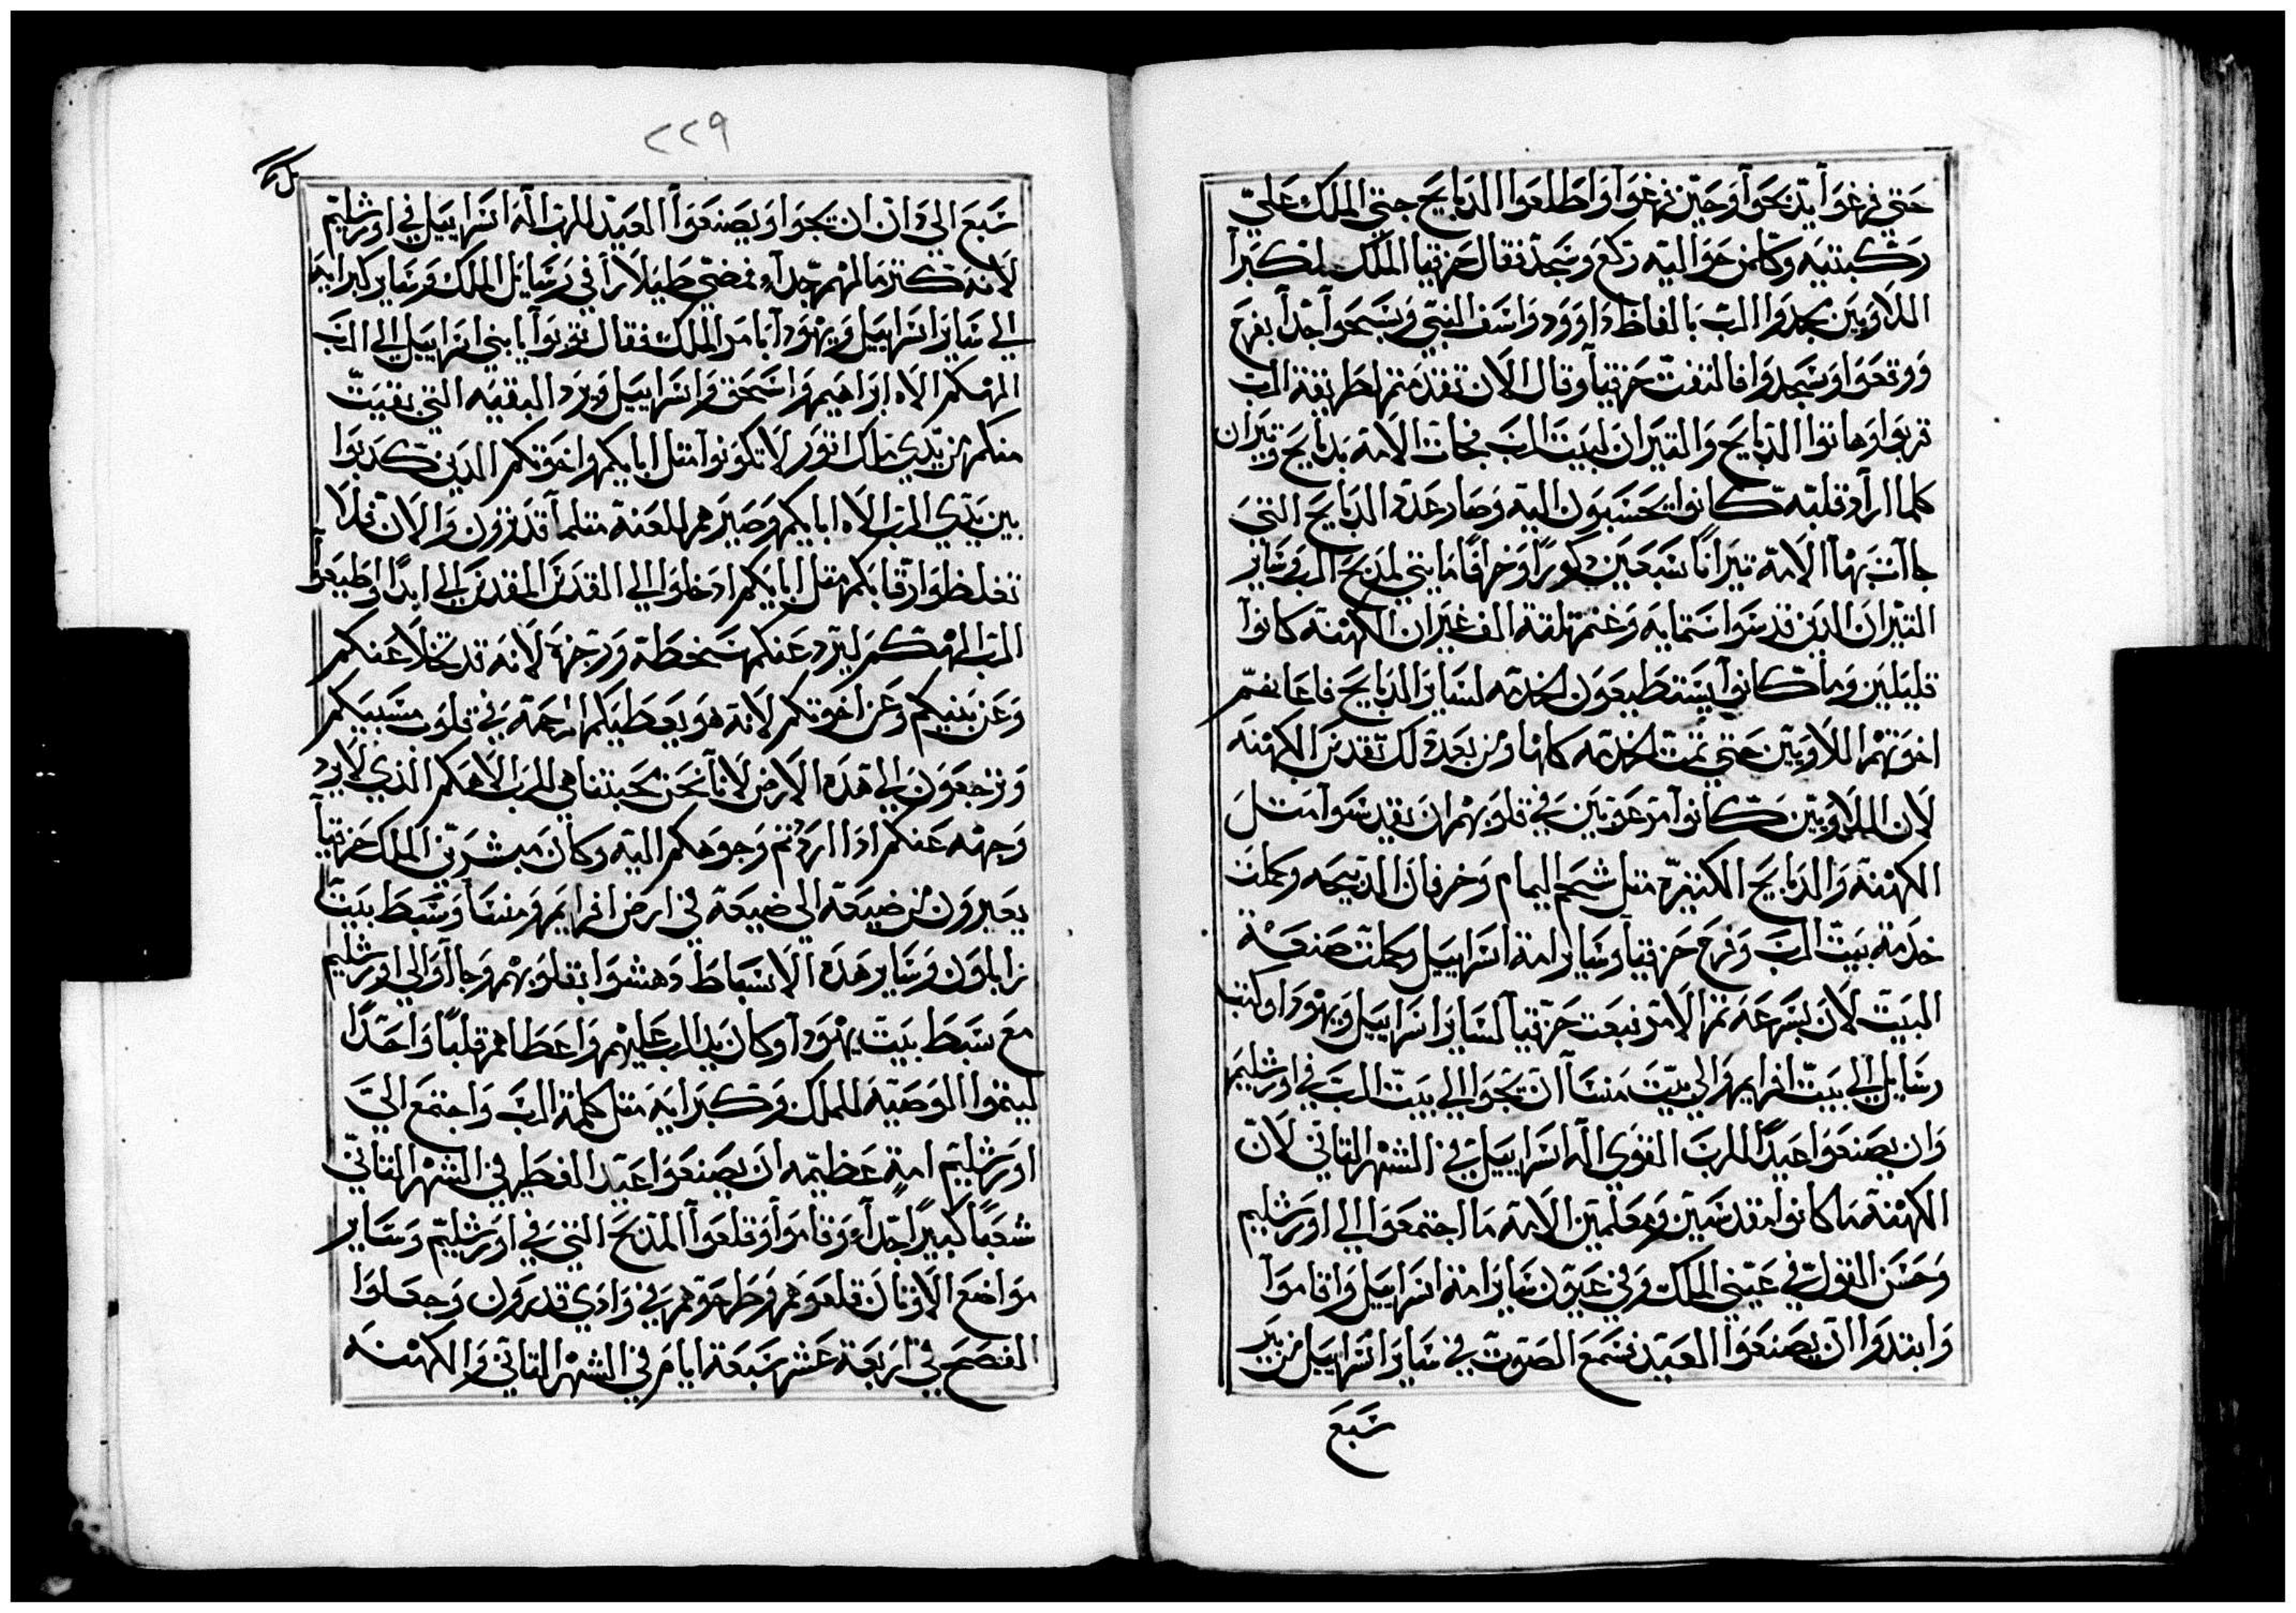 حتى فرغوا يدبحوا وحين فرغوا واطلعوا الدبايح جتى الملك على
ركبتيه وكلمن حواليه ركع وسجد فقال حزقيا الملك لكبرا
اللاويين مجدوا الرب بالفاظ داوود واسف النبي وسبحوا جدا بفرح
ووقعوا وسجدوا فالتفت حزقيا وقال الان تقدمتم لطريقة الرب
قربوا وهاتوا الدبايح والقيران لبيت الرب فجات الامة بدبايح وتيران
كلما اراد قلبه كانوا يحسبون اليه وصار عدد الدبايح التي
جاات بها الامة تيرانا سبعين كورا وخرافا مايتي لمدبح الرب وساير
التيران الدين قدسوا ستمايه وغنم تلتة الف غير ان الكهنة كانوا
قليلين وما كانوا يستطيعون الخدمه لساير الدبايح فاعانهم
اخوتهم اللاويين حتى تمت الخدمه كلها ومن بعد دلك تقدس الكهنه
لان اللاويين كانوا مرعوبين في قلوبهم ان يقدسوا متل
الكهنة والدبايح الكتيرة متل شحم اليمام وخرفان الدبيحه وكملت
خدمة بيت الرب وفرح حزقيا وساير امة اسراييل وكملت صنعة
البيت لان بسرعة تم الامر فبعت حزقيا لساير اسراييل ويهودا وكتب
رسايل الي بيت افرايم والي بيت منسا ان يجوا الي بيت الرب في اورشليم
وان يصنعوا عيدا للرب القوي اله اسراييل في الشهر التاني لان
الكهنة ما كانوا مقدسين ومعلمين الامة ما اجتمعوا الي اورشليم
وحسن القول في عيني الملك وفي عيون ساير امة اسراييل واقاموا
وابتدوا ان يصنعوا العيد فسمع الصوت في ساير اسراييل من بير
سبع
٢٢٩
سبع الي دان ان يجوا ويصنعوا العيد للرب اله اسراييل في اورشليم
لانه كتر مالهم جدا فمضى في رسايل الملك وساير كبرايه
الي ساير اسراييل ويهودا بامر الملك فقال توبوا يا بني اسراييل الي الرب
الهكم الاه ابراهيم واسحق واسراييل ويرد البقيه التي بقيت
منكم من يدي ملك اتور لا تكونوا متل ابايكم واخوتكم الدين كدبوا
بين يدي الرب الاه ابايكم وصيرهم للعنة متلما قد ترون والان فلا
تغلظوا رقابكم متل ابايكم ادخلوا الي القدس المقدس الي ابدا اوطيعوا
الرب الهكم ليرد عنكم سخطه ورجزه لانه قد تخلا عنكم
وعن بنيكم وعن اخوتكم لانه هو يعطيكم الرحمة في قلوب مسبيكم
وترجعون الي هده الارض لانا نحن محبتنا هي للرب الاهكم الذي لا يرد
وجهه عنكم ادا اردتم وجوهكم اليه وكان مبشرين الملك حزقيا
يعبرون من ضيعة الي ضيعة في ارض افرايم ومنسا وسبط بيت
زابلون وساير هده الاسباط دهشوا بقلوبهم وجااوا الي اورشليم
مع سبط بيت يهودا وكان يد الرب عليهم واعطاهم قلبا واحدا
ليتموا الوصية للملك وكبرايه متل كلمة الرب واجتمع الي
اورشليم امة عظيمه ان يصنعوا عيد الفطير في الشهر التاني
شعبا كبيرا جدا وقاموا وقلعوا المدبح التي في اورشليم وساير
مواضع الاوتان قلعوهم وطرحوهم في وادي قدرون وجعلوا
الفصح في اربعة عشر سبعة ايام في الشهر التاني والكهنه